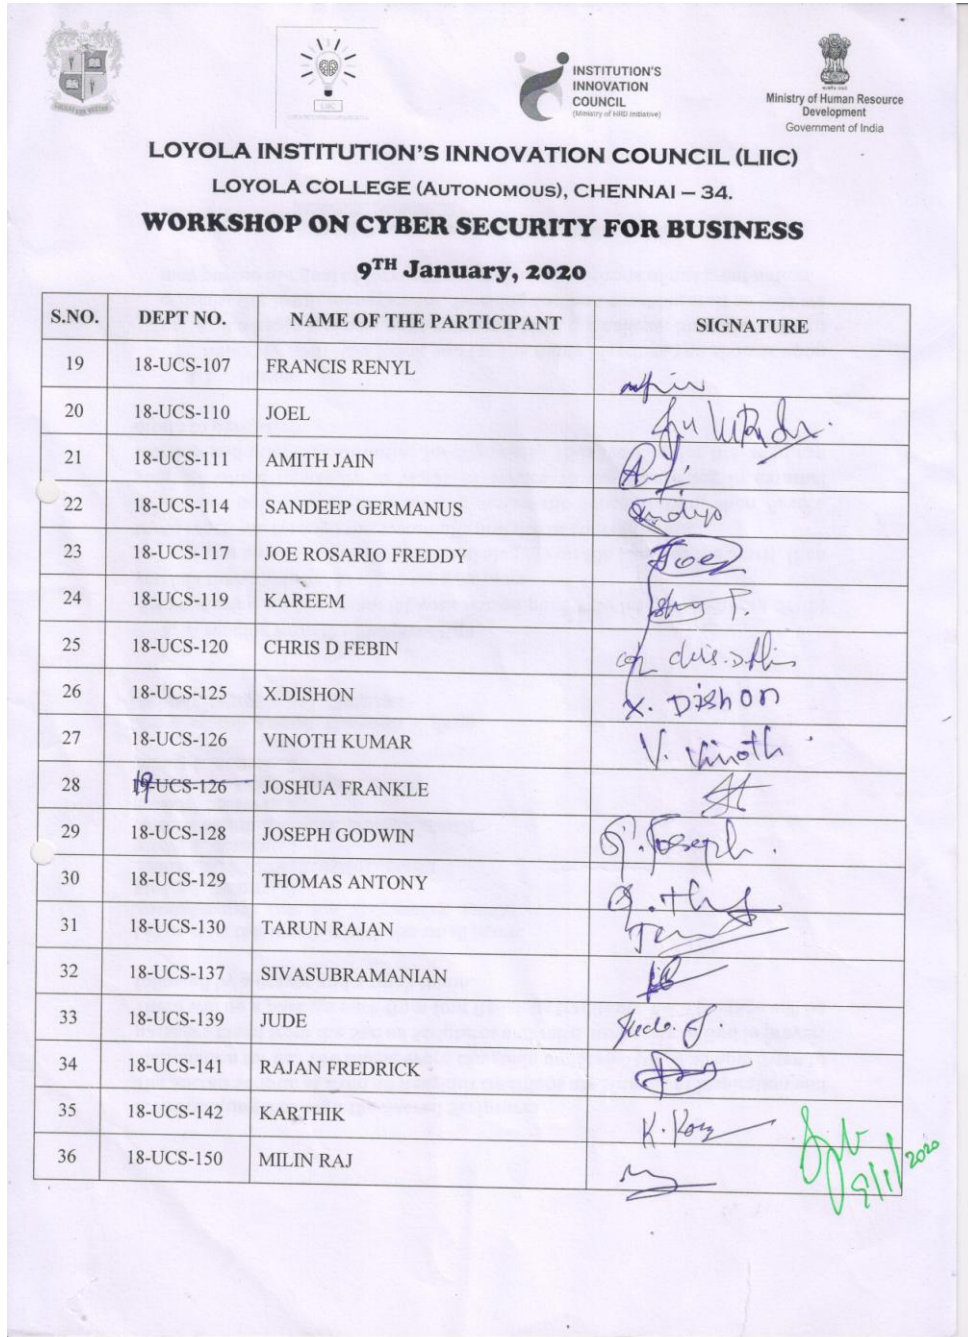 INSTITUTION'S
INNOVATION
COUNCIL
(Ministry of HRD Initiative)
Ministry of Human Resource
Development
Government of India
LOYOLA INSTITUTION'S INNOVATION COUNCIL (LIIC)
LOYOLA COLLEGE (AUTONOMOUS), CHENNAI – 34.
WORKSHOP ON CYBER SECURITY FOR BUSINESS
9TH January, 2020
S.NO. DEPT NO. NAME OF THE PARTICIPANT SIGNATURE
19 18-UCS-107 FRANCIS RENYL
20 18-UCS-110 JOEL
21 18-UCS-111 AMITH JAIN
22 18-UCS-114 SANDEEP GERMANUS
23 18-UCS-117 JOE ROSARIO FREDDY Joe
24 18-UCS-119 KAREEM
25 18-UCS-120 CHRIS D FEBIN
26 18-UCS-125 X.DISHON X. DishON
27 18-UCS-126 VINOTH KUMAR V. Vinoth
28 19-UCS-126 JOSHUA FRANKLE
29 18-UCS-128 JOSEPH GODWIN Joseph.
30 18-UCS-129 THOMAS ANTONY
31 18-UCS-130 TARUN RAJAN
32 18-UCS-137 SIVASUBRAMANIAN
33 18-UCS-139 JUDE Jude.
34 18-UCS-141 RAJAN FREDRICK
35 18-UCS-142 KARTHIK
36 18-UCS-150 MILIN RAJ
9/1/2020